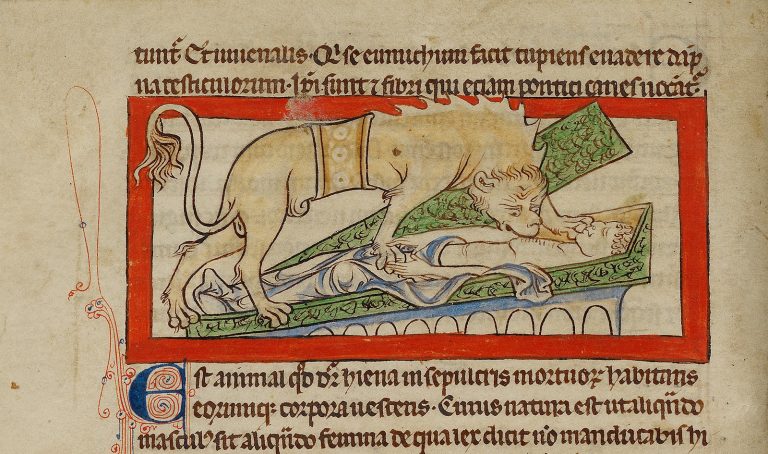 tunt᷑. Et iuuenalis. Qͥ se eunuchum facit cupiens euadere dāp
na testiculorum. Ip̄i sunt ⁊ fibri qui eciam pontici canes uocāt᷑.
Est animal qd̄ dr̄ hiena in sepulcris mortuoꝝ habitans
eorumqꝫ corpora uescens. Cuius natura est ut aliqn̄do
masculꝰ sit aliqn̄do femina de qua lex dicit nō manducabis hi